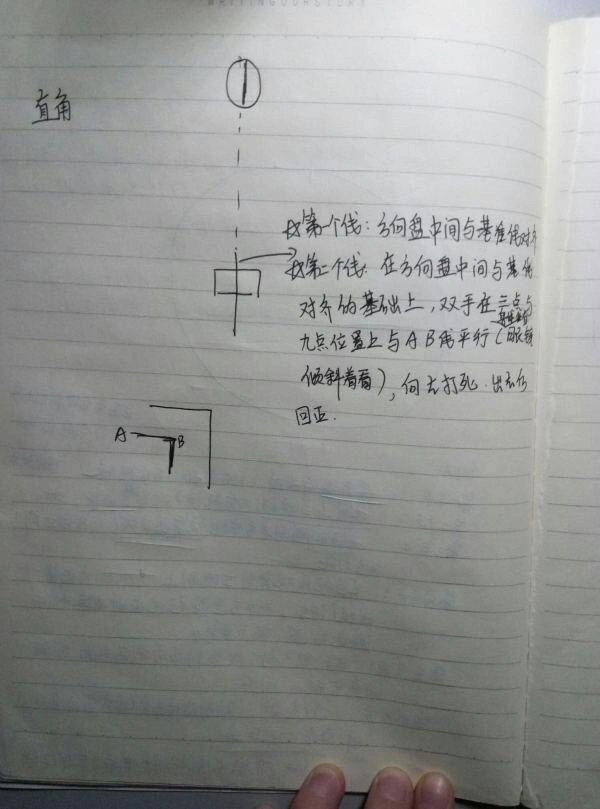 直角
☆第一个线：方向盘中间与基准线对齐
☆第二个线：在方向盘中间与基准
对齐的基础上，双手在三点与
九点位置上与AB线平行（眼镜
倾斜着看），向左打死.出去后
回正.
A
B